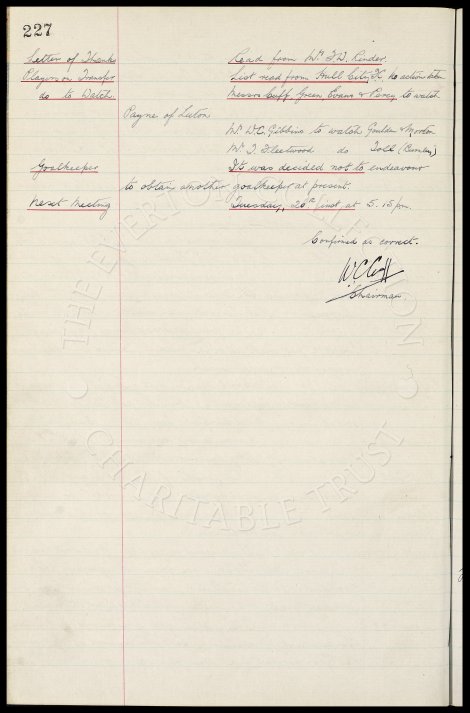 227
Letter of Thanks Read from Mr F.D. Linder
Players on Transfer List read from Hull City FC No action taken
do to Watch. Messrs Cuff Green Evans & Percy to watch
Payne of Luton
Mr D.C. Gibbins to watch Goulden & Morton
Mr T. Fleetwood do Toll (Burnley)
Goalkeeper It was decided not to endeavour
to obtain another goalkeeper at present.
Next Meeting Tuesday, 20th inst at 5.15 pm.
Confirmed as correct.
W.C. Cuff
Chairman
THE EVERTON COLLECTION
CHARITABLE TRUST